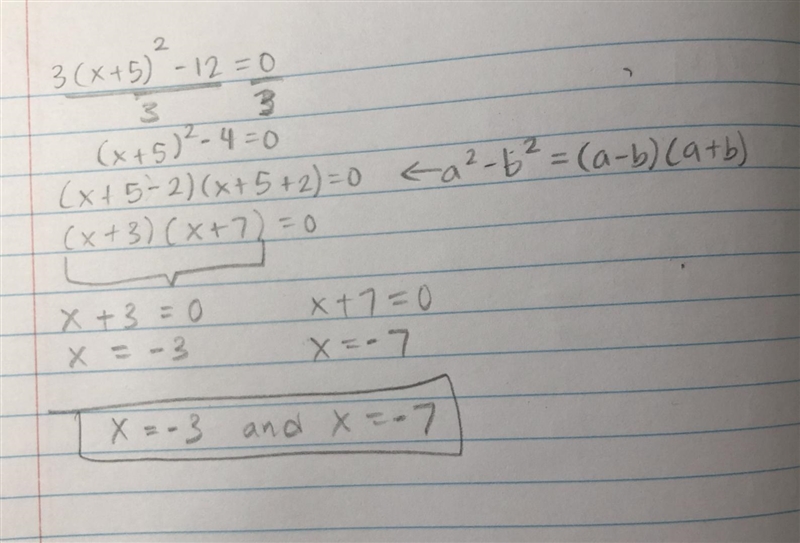 3(x+5)² - 12 = 0
3 3
(x+5)² - 4 = 0
(x+5-2)(x+5+2)=0 ← a² - b² = (a-b)(a+b)
(x+3)(x+7) = 0
x + 3 = 0 x+7=0
x = -3 x=-7
x = -3 and x = -7